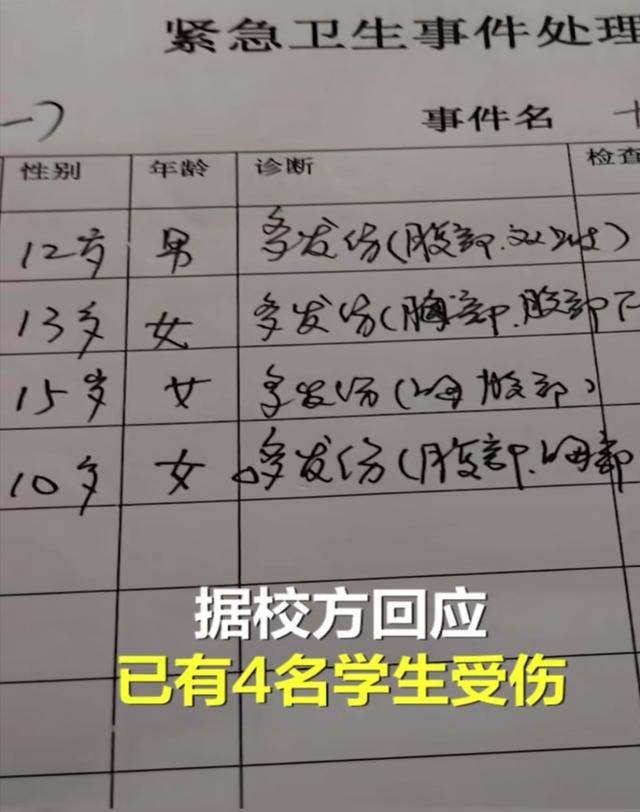 紧急卫生事件处理
一)
事件名
性别 年龄 诊断 检查
12岁 男 多发伤(腹部.双)
13岁 女 多发伤(胸部.腹部下
15岁 女 多发伤(腹部)
10岁 女 多发伤(腹部.部
据校方回应
已有4名学生受伤